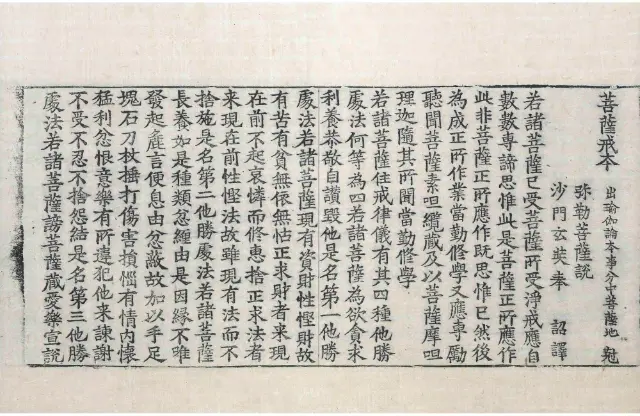 菩薩戒本 出瑜伽論本事分中菩薩地 冠
弥勒菩薩說
沙門玄奘奉 詔譯
若諸菩薩已受菩薩所受淨戒應自
數數專諦思惟此是菩薩正所應作
此非菩薩正所應作既思惟已然後
為成正所作業當勤修學又應專勵
聽聞菩薩素呾纜藏及以菩薩摩呾
理迦隨其所聞當勤修學
若諸菩薩住戒律儀有其四種他勝
處法何等為四若諸菩薩為欲貪求
利養恭敬自讚毀他是名第一他勝
處法若諸菩薩現有資財性慳財故
有苦有貧無依無怙正求財者來現
在前不起哀憐而修惠捨正求法者
來現在前性慳法故雖現有法而不
捨施是名第二他勝處法若諸菩薩
長養如是種類忿纏由是因緣不唯
發起麁言便息由忿蔽故加以手足
塊石刀杖捶打傷害損惱有情內懷
猛利忿恨意樂有所違犯他來諫謝
不受不忍不捨怨結是名第三他勝
處法若諸菩薩謗菩薩藏愛樂宣說